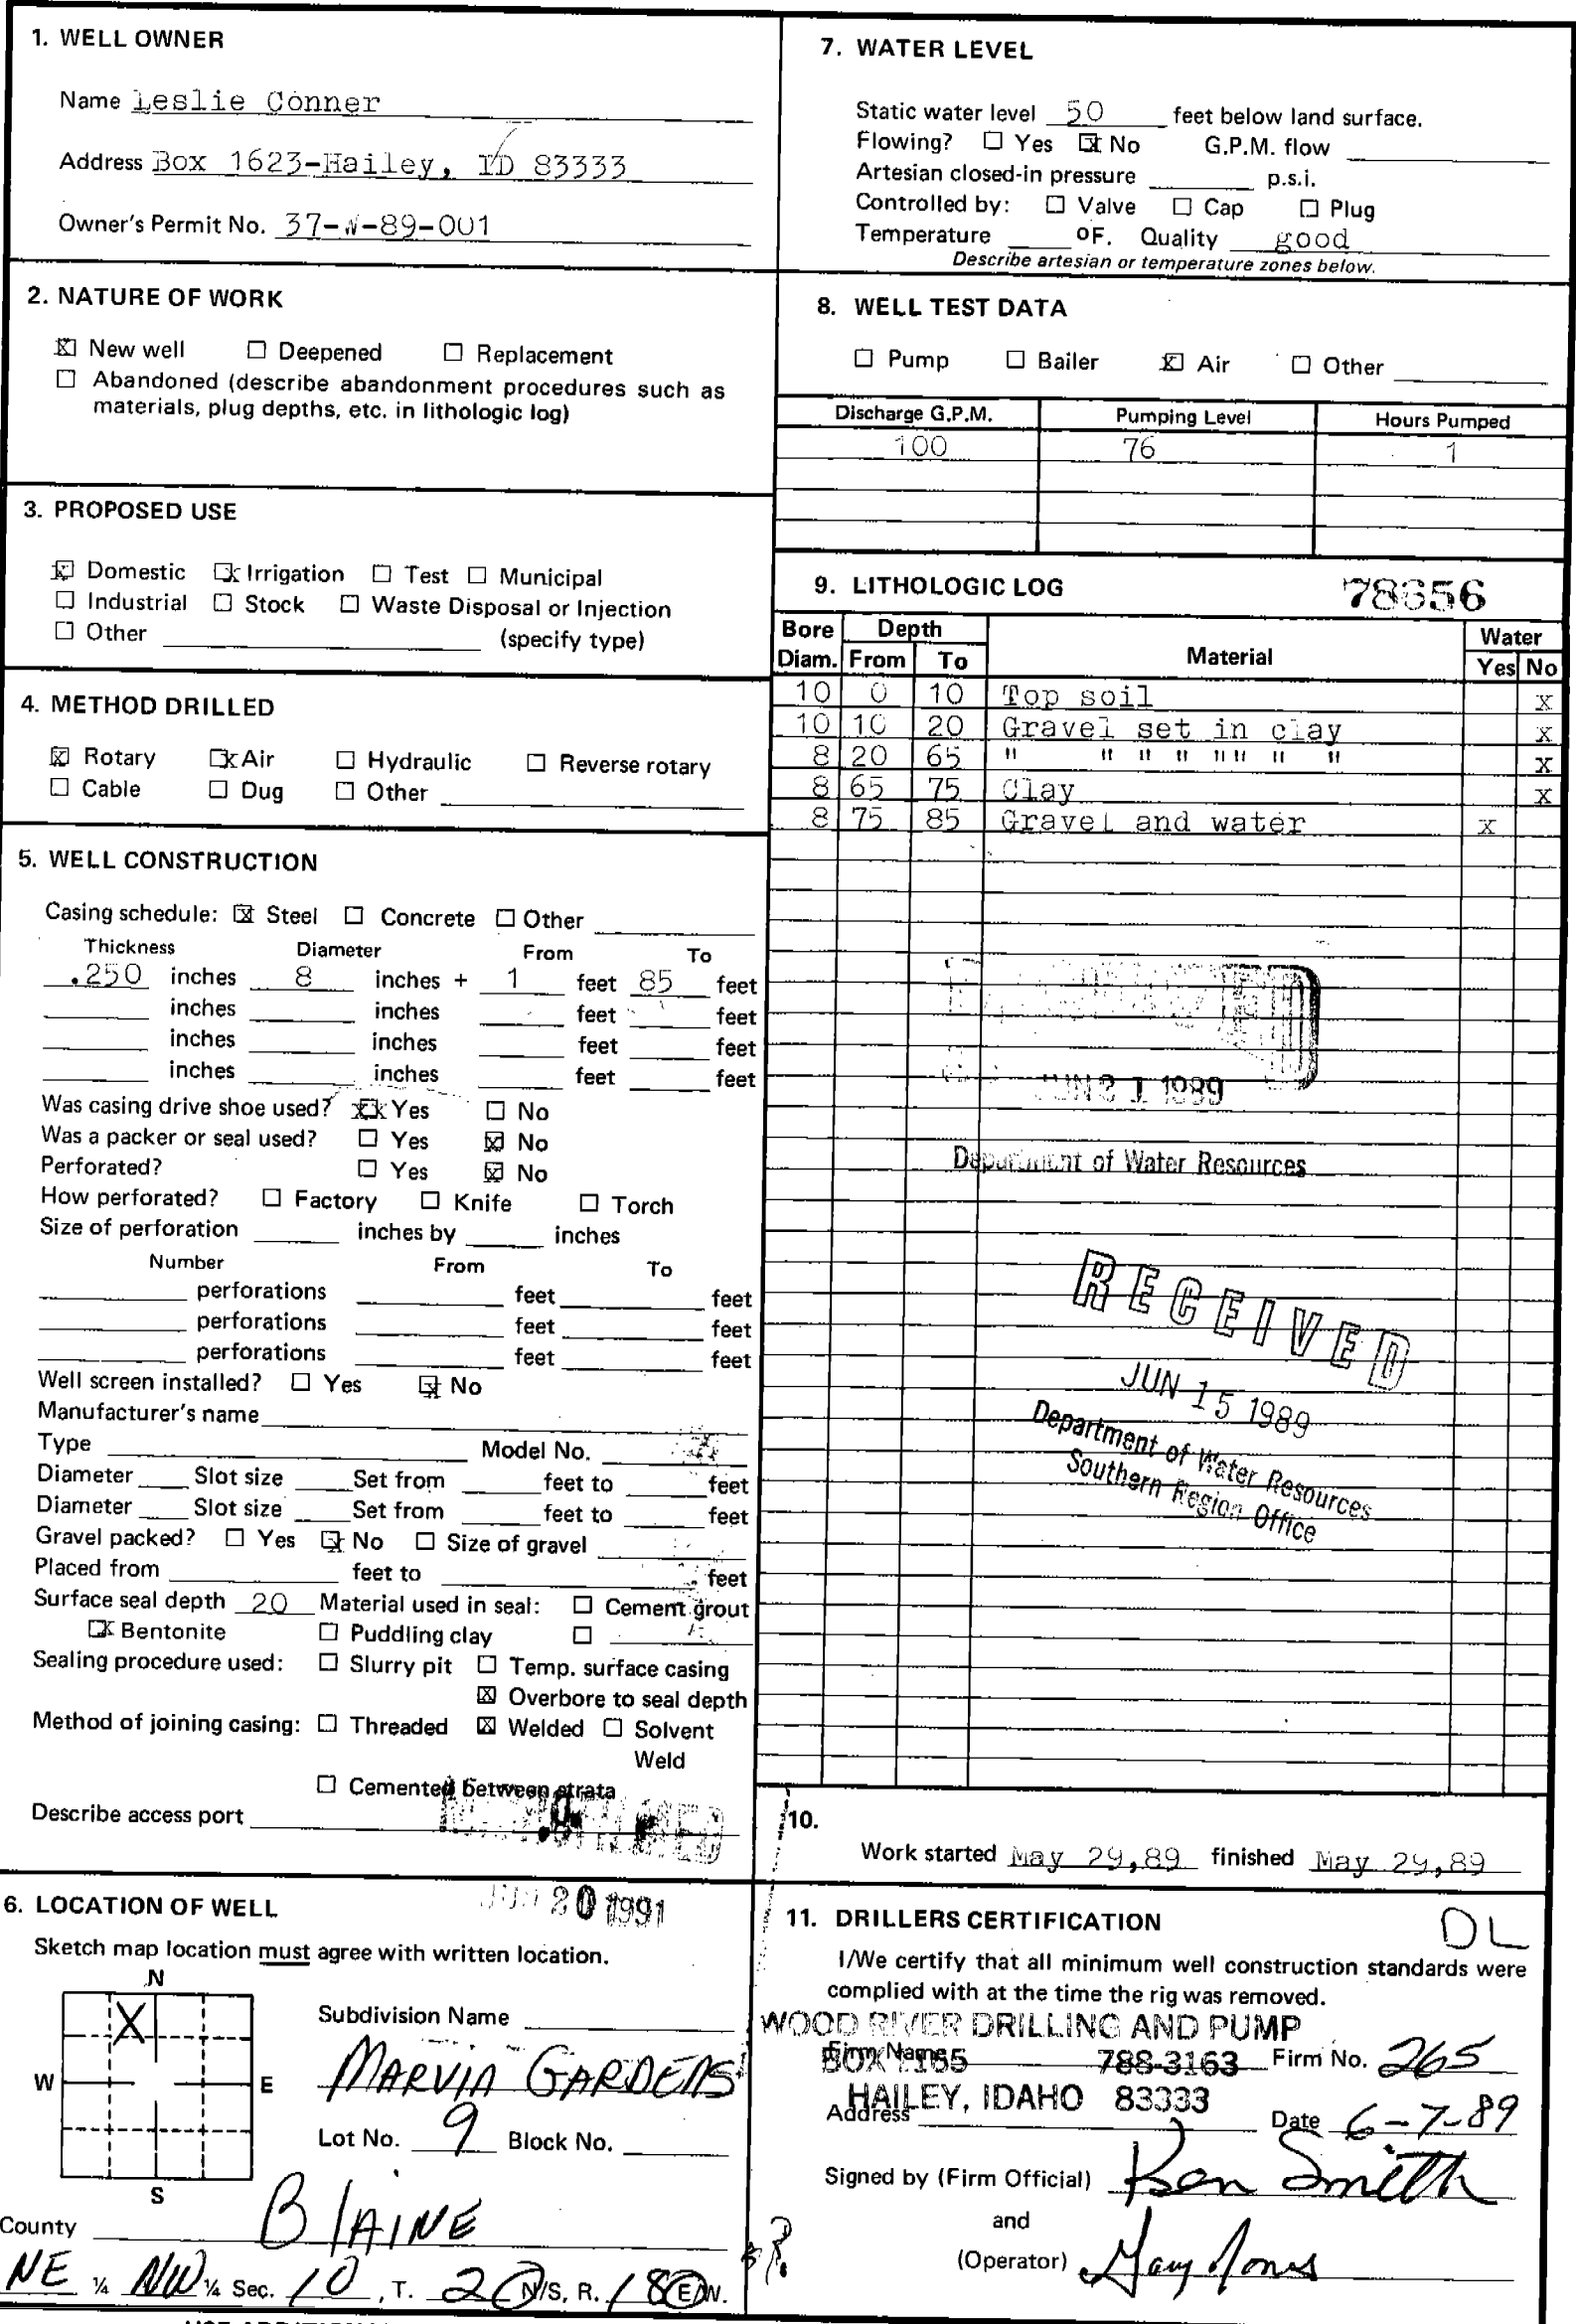 1. WELL OWNER
Name Leslie Conner
Address Box 1623-Hailey, ID 83333
Owner's Permit No. 37-W-89-001
2. NATURE OF WORK
☒ New well ☐ Deepened ☐ Replacement
☐ Abandoned (describe abandonment procedures such as
materials, plug depths, etc. in lithologic log)
3. PROPOSED USE
☒ Domestic ☒ Irrigation ☐ Test ☐ Municipal
☐ Industrial ☐ Stock ☐ Waste Disposal or Injection
☐ Other (specify type)
4. METHOD DRILLED
☒ Rotary ☒ Air ☐ Hydraulic ☐ Reverse rotary
☐ Cable ☐ Dug ☐ Other
5. WELL CONSTRUCTION
Casing schedule: ☒ Steel ☐ Concrete ☐ Other
Thickness Diameter From To
.250 inches 8 inches + 1 feet 85 feet
inches inches feet feet
inches inches feet feet
inches inches feet feet
Was casing drive shoe used? ☒ Yes ☐ No
Was a packer or seal used? ☐ Yes ☒ No
Perforated? ☐ Yes ☒ No
How perforated? ☐ Factory ☐ Knife ☐ Torch
Size of perforation inches by inches
Number From To
perforations feet feet
perforations feet feet
perforations feet feet
Well screen installed? ☐ Yes ☒ No
Manufacturer's name
Type Model No.
Diameter Slot size Set from feet to feet
Diameter Slot size Set from feet to feet
Gravel packed? ☐ Yes ☒ No ☐ Size of gravel
Placed from feet to feet
Surface seal depth 20 Material used in seal: ☐ Cement grout
☒ Bentonite ☐ Puddling clay ☐
Sealing procedure used: ☐ Slurry pit ☐ Temp. surface casing
☒ Overbore to seal depth
Method of joining casing: ☐ Threaded ☒ Welded ☐ Solvent
Weld
☐ Cemented between strata
Describe access port
6. LOCATION OF WELL
JUN 20 1991
Sketch map location must agree with written location.
N
X
W E
S
Subdivision Name
MARVIN GARDENS
Lot No. 9 Block No.
County BLAINE
NE ¼ NW ¼ Sec. 10, T. 2 N/S, R. 18 E/W.
7. WATER LEVEL
Static water level 50 feet below land surface.
Flowing? ☐ Yes ☒ No G.P.M. flow
Artesian closed-in pressure p.s.i.
Controlled by: ☐ Valve ☐ Cap ☐ Plug
Temperature ºF. Quality good
Describe artesian or temperature zones below.
8. WELL TEST DATA
☐ Pump ☐ Bailer ☒ Air ☐ Other
Discharge G.P.M. Pumping Level Hours Pumped
100 76 1
9. LITHOLOGIC LOG 78656
Bore Depth Water
Diam. From To Material Yes No
10 0 10 Top soil x
10 10 20 Gravel set in clay x
8 20 65 " " " " " " " " x
8 65 75 Clay x
8 75 85 Gravel and water x
JUN 21 1989
Department of Water Resources
RECEIVED
JUN 15 1989
Department of Water Resources
Southern Region Office
10.
Work started May 29,89 finished May 29,89
11. DRILLERS CERTIFICATION DL
I/We certify that all minimum well construction standards were
complied with at the time the rig was removed.
WOOD RIVER DRILLING AND PUMP
Firm Name BOX 1165 788-3163 Firm No. 265
HAILEY, IDAHO 83333
Address Date 6-7-89
Signed by (Firm Official) Ken Smith
and
(Operator) Gary Jones